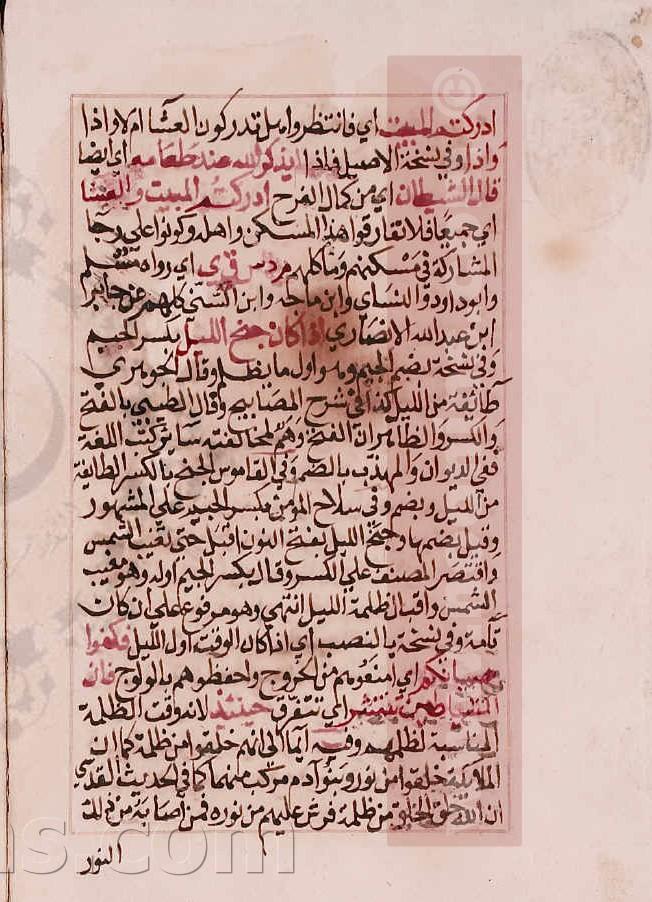 ادركتم المبيت اي فانتظروا بل قدر كون العشا ام لا واذا
واذا وفي نسخة الاصيل فاذا لم يذكر الله عند طعامه اي ايضا
قال الشيطان اي من كمال الفرح ادركتم المبيت والعشا
اي جميعا فلا تفارقوا هذا المسكن واهله وكونوا على رجا
المشاركة في مسكنهم وماكلهم م د س ق ي اي رواه مسلم
وابوداود والنساي وابن ماجه وابن السني كلهم عن جابر
ابن عبدالله الانصاري اذا كان جنح الليل بكسر الجيم
وفي نسخة بضم الجيم وهو اول ما يظلم وقال الجوهري
طائفة من الليل كذا في شرح المصابيح وقال الطيبي بالفتح
والكسر والظاهر ان الفتح وهم لمخالفته ساير كتب اللغة
ففي الديوان والمهذب بالضم وفي القاموس الجنح بالكسر الطايفة
من الليل وبضم وفي سلاح المؤمن بكسر الجيم على المشهور
وقيل بضمها وجنح الليل بفتح النون اقبل حتى تغيب الشمس
واقتصر المصنف على الكسر وقال بكسر الجيم اوله وهو مغيب
الشمس واقبال ظلمة الليل انتهى وهو مرفوع على ان كان
تامة وفي نسخة بالنصب اي اذا كان الوقت اول الليل فكفوا
صبيانكم اي امنعوهم من الخروج واحفظوهم بالولوج فان
الشياطين تنتشر اي تتفرق حينئذ لانه وقت الظلمة
المناسبة لظلمهم وفيه ايما الى انهم خلقوا من ظلمة كما ان
الملايكة خلقوا من نور وبنو آدم مركب منهما كما في الحديث القدسي
ان الله خلق الخلق من ظلمة فرش عليهم من نوره فمن اصابه من ذلك
النور
ns.com